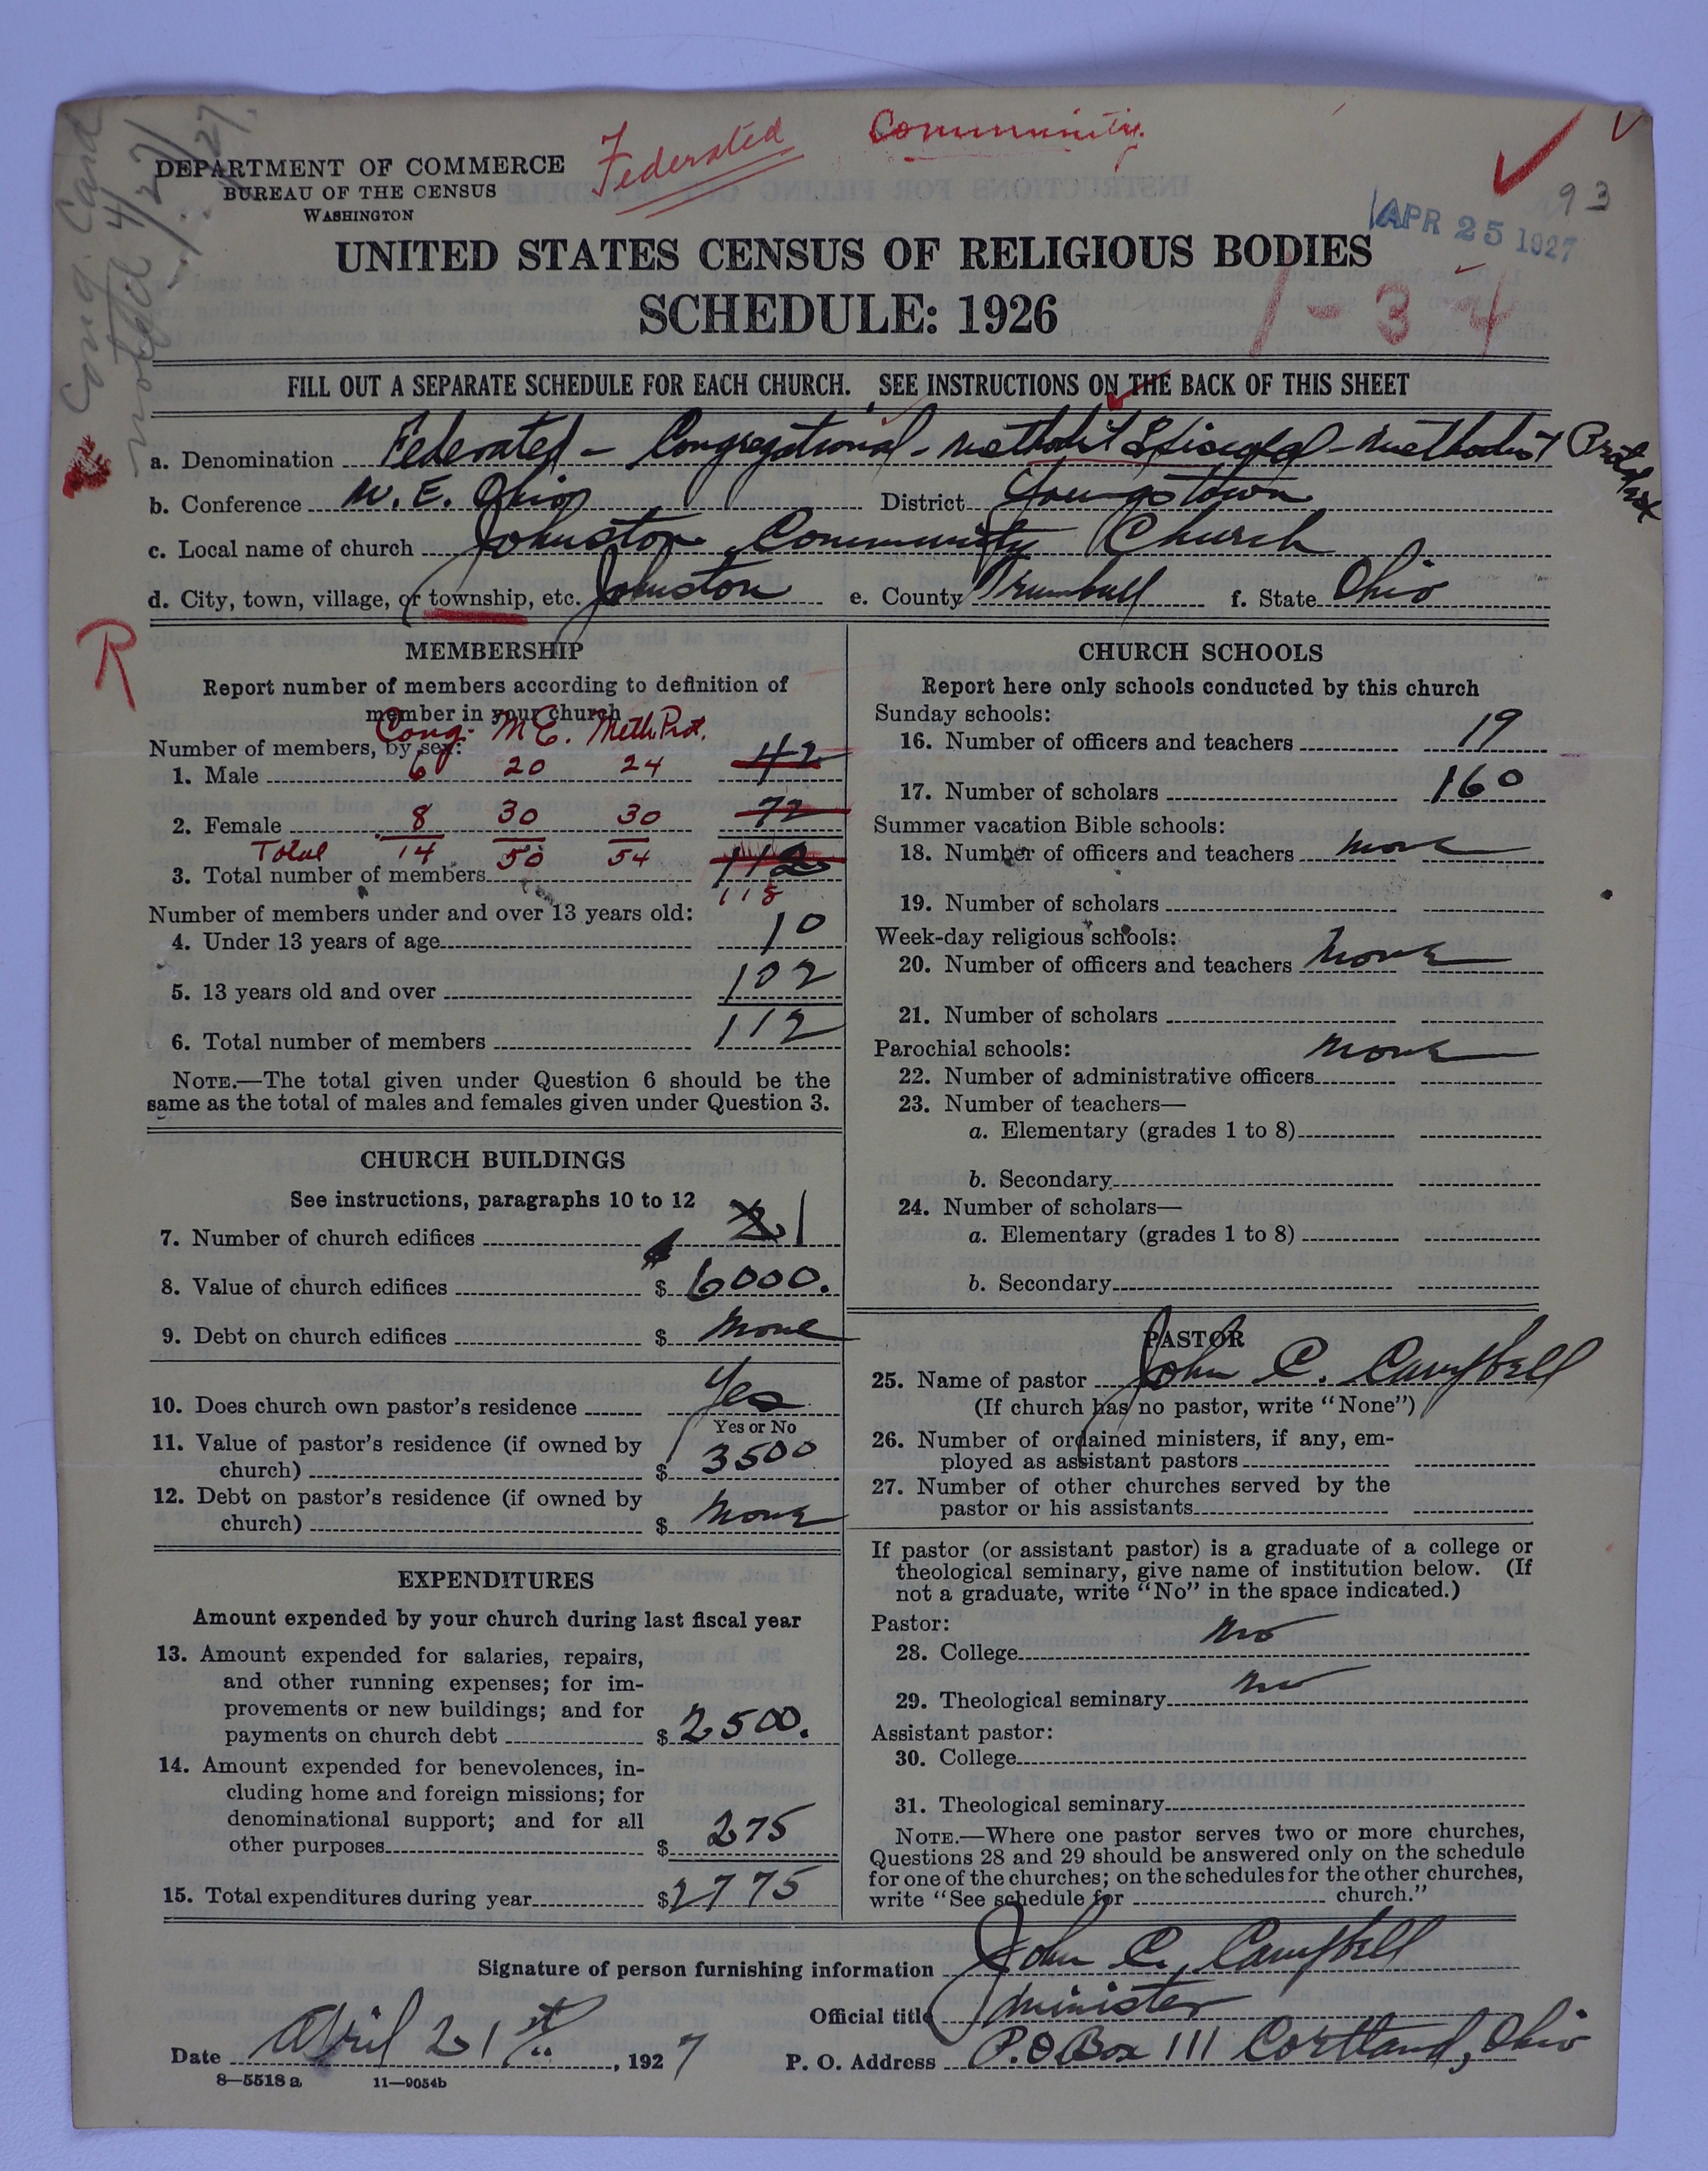 Cong. Card
Federated Community
93
DEPARTMENT OF COMMERCE
BUREAU OF THE CENSUS
WASHINGTON
APR 25 1927
UNITED STATES CENSUS OF RELIGIOUS BODIES
SCHEDULE: 1926
1-34
FILL OUT A SEPARATE SCHEDULE FOR EACH CHURCH. SEE INSTRUCTIONS ON THE BACK OF THIS SHEET
a. Denomination Federated - Congregational - Methodist Episcopal - Methodist Protestant
b. Conference N. E. Ohio District Youngstown
c. Local name of church Johnston Community Church
d. City, town, village, or township, etc. Johnston e. County Trumbull f. State Ohio
R
MEMBERSHIP
Report number of members according to definition of
member in your church
Cong. M E. Meth. Prot.
Number of members, by sex:
1. Male 6 20 24 42
2. Female 8 30 30 72
Total 14 50 54 112
3. Total number of members 118
Number of members under and over 13 years old:
4. Under 13 years of age 10
5. 13 years old and over 102
6. Total number of members 112
NOTE.—The total given under Question 6 should be the
same as the total of males and females given under Question 3.
CHURCH BUILDINGS
See instructions, paragraphs 10 to 12
7. Number of church edifices 1
8. Value of church edifices $ 6000.
9. Debt on church edifices $ None
10. Does church own pastor's residence Yes
Yes or No
11. Value of pastor's residence (if owned by
church) $ 3500
12. Debt on pastor's residence (if owned by
church) $ None
EXPENDITURES
Amount expended by your church during last fiscal year
13. Amount expended for salaries, repairs,
and other running expenses; for im-
provements or new buildings; and for
payments on church debt $ 2500.
14. Amount expended for benevolences, in-
cluding home and foreign missions; for
denominational support; and for all
other purposes $ 275
15. Total expenditures during year $2775
CHURCH SCHOOLS
Report here only schools conducted by this church
Sunday schools:
16. Number of officers and teachers 19
17. Number of scholars 160
Summer vacation Bible schools:
18. Number of officers and teachers None
19. Number of scholars
Week-day religious schools:
20. Number of officers and teachers None
21. Number of scholars
Parochial schools: None
22. Number of administrative officers
23. Number of teachers—
a. Elementary (grades 1 to 8)
b. Secondary
24. Number of scholars—
a. Elementary (grades 1 to 8)
b. Secondary
PASTOR
25. Name of pastor John C. Campbell
(If church has no pastor, write "None")
26. Number of ordained ministers, if any, em-
ployed as assistant pastors
27. Number of other churches served by the
pastor or his assistants
If pastor (or assistant pastor) is a graduate of a college or
theological seminary, give name of institution below. (If
not a graduate, write "No" in the space indicated.)
Pastor:
28. College No
29. Theological seminary No
Assistant pastor:
30. College
31. Theological seminary
NOTE.—Where one pastor serves two or more churches,
Questions 28 and 29 should be answered only on the schedule
for one of the churches; on the schedules for the other churches,
write "See schedule for church."
Signature of person furnishing information John C. Campbell
Official title Minister
Date April 21st, 1927 P. O. Address P.O Box 111 Cortland, Ohio
8—5518 a 11—9054b